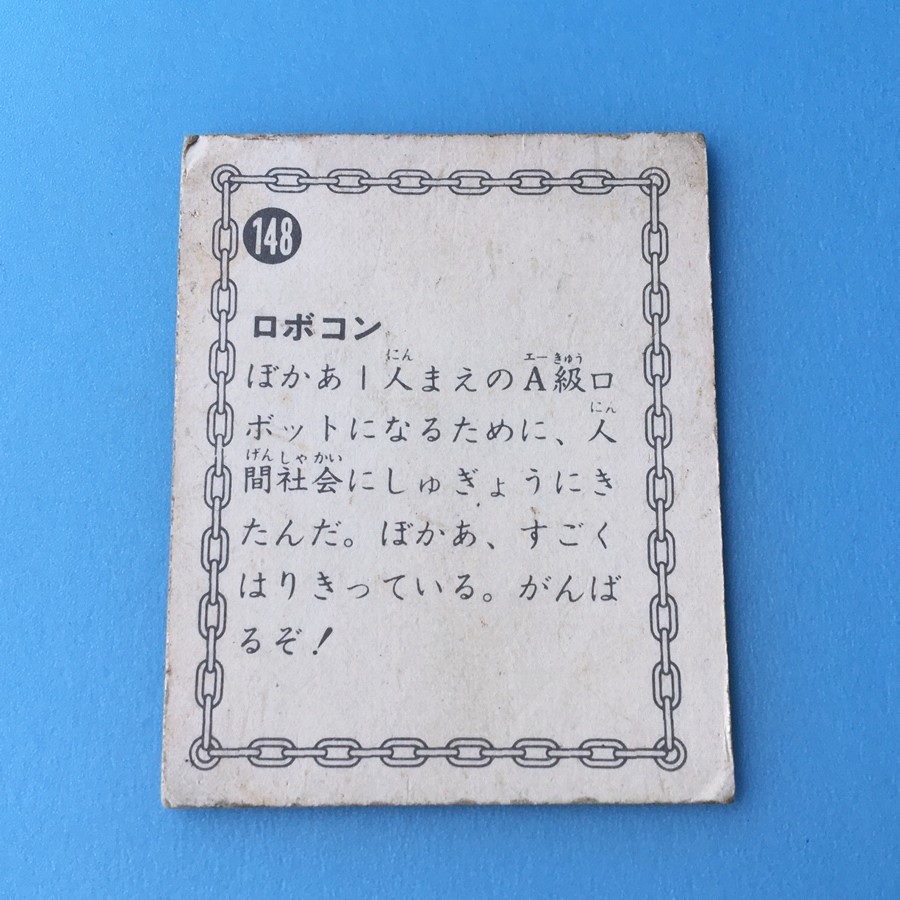 148
ロボコン
ぼかあ1人まえのA級ロ
ボットになるために、人
間社会にしゅぎょうにき
たんだ。ぼかあ、すごく
はりきっている。がんば
るぞ!